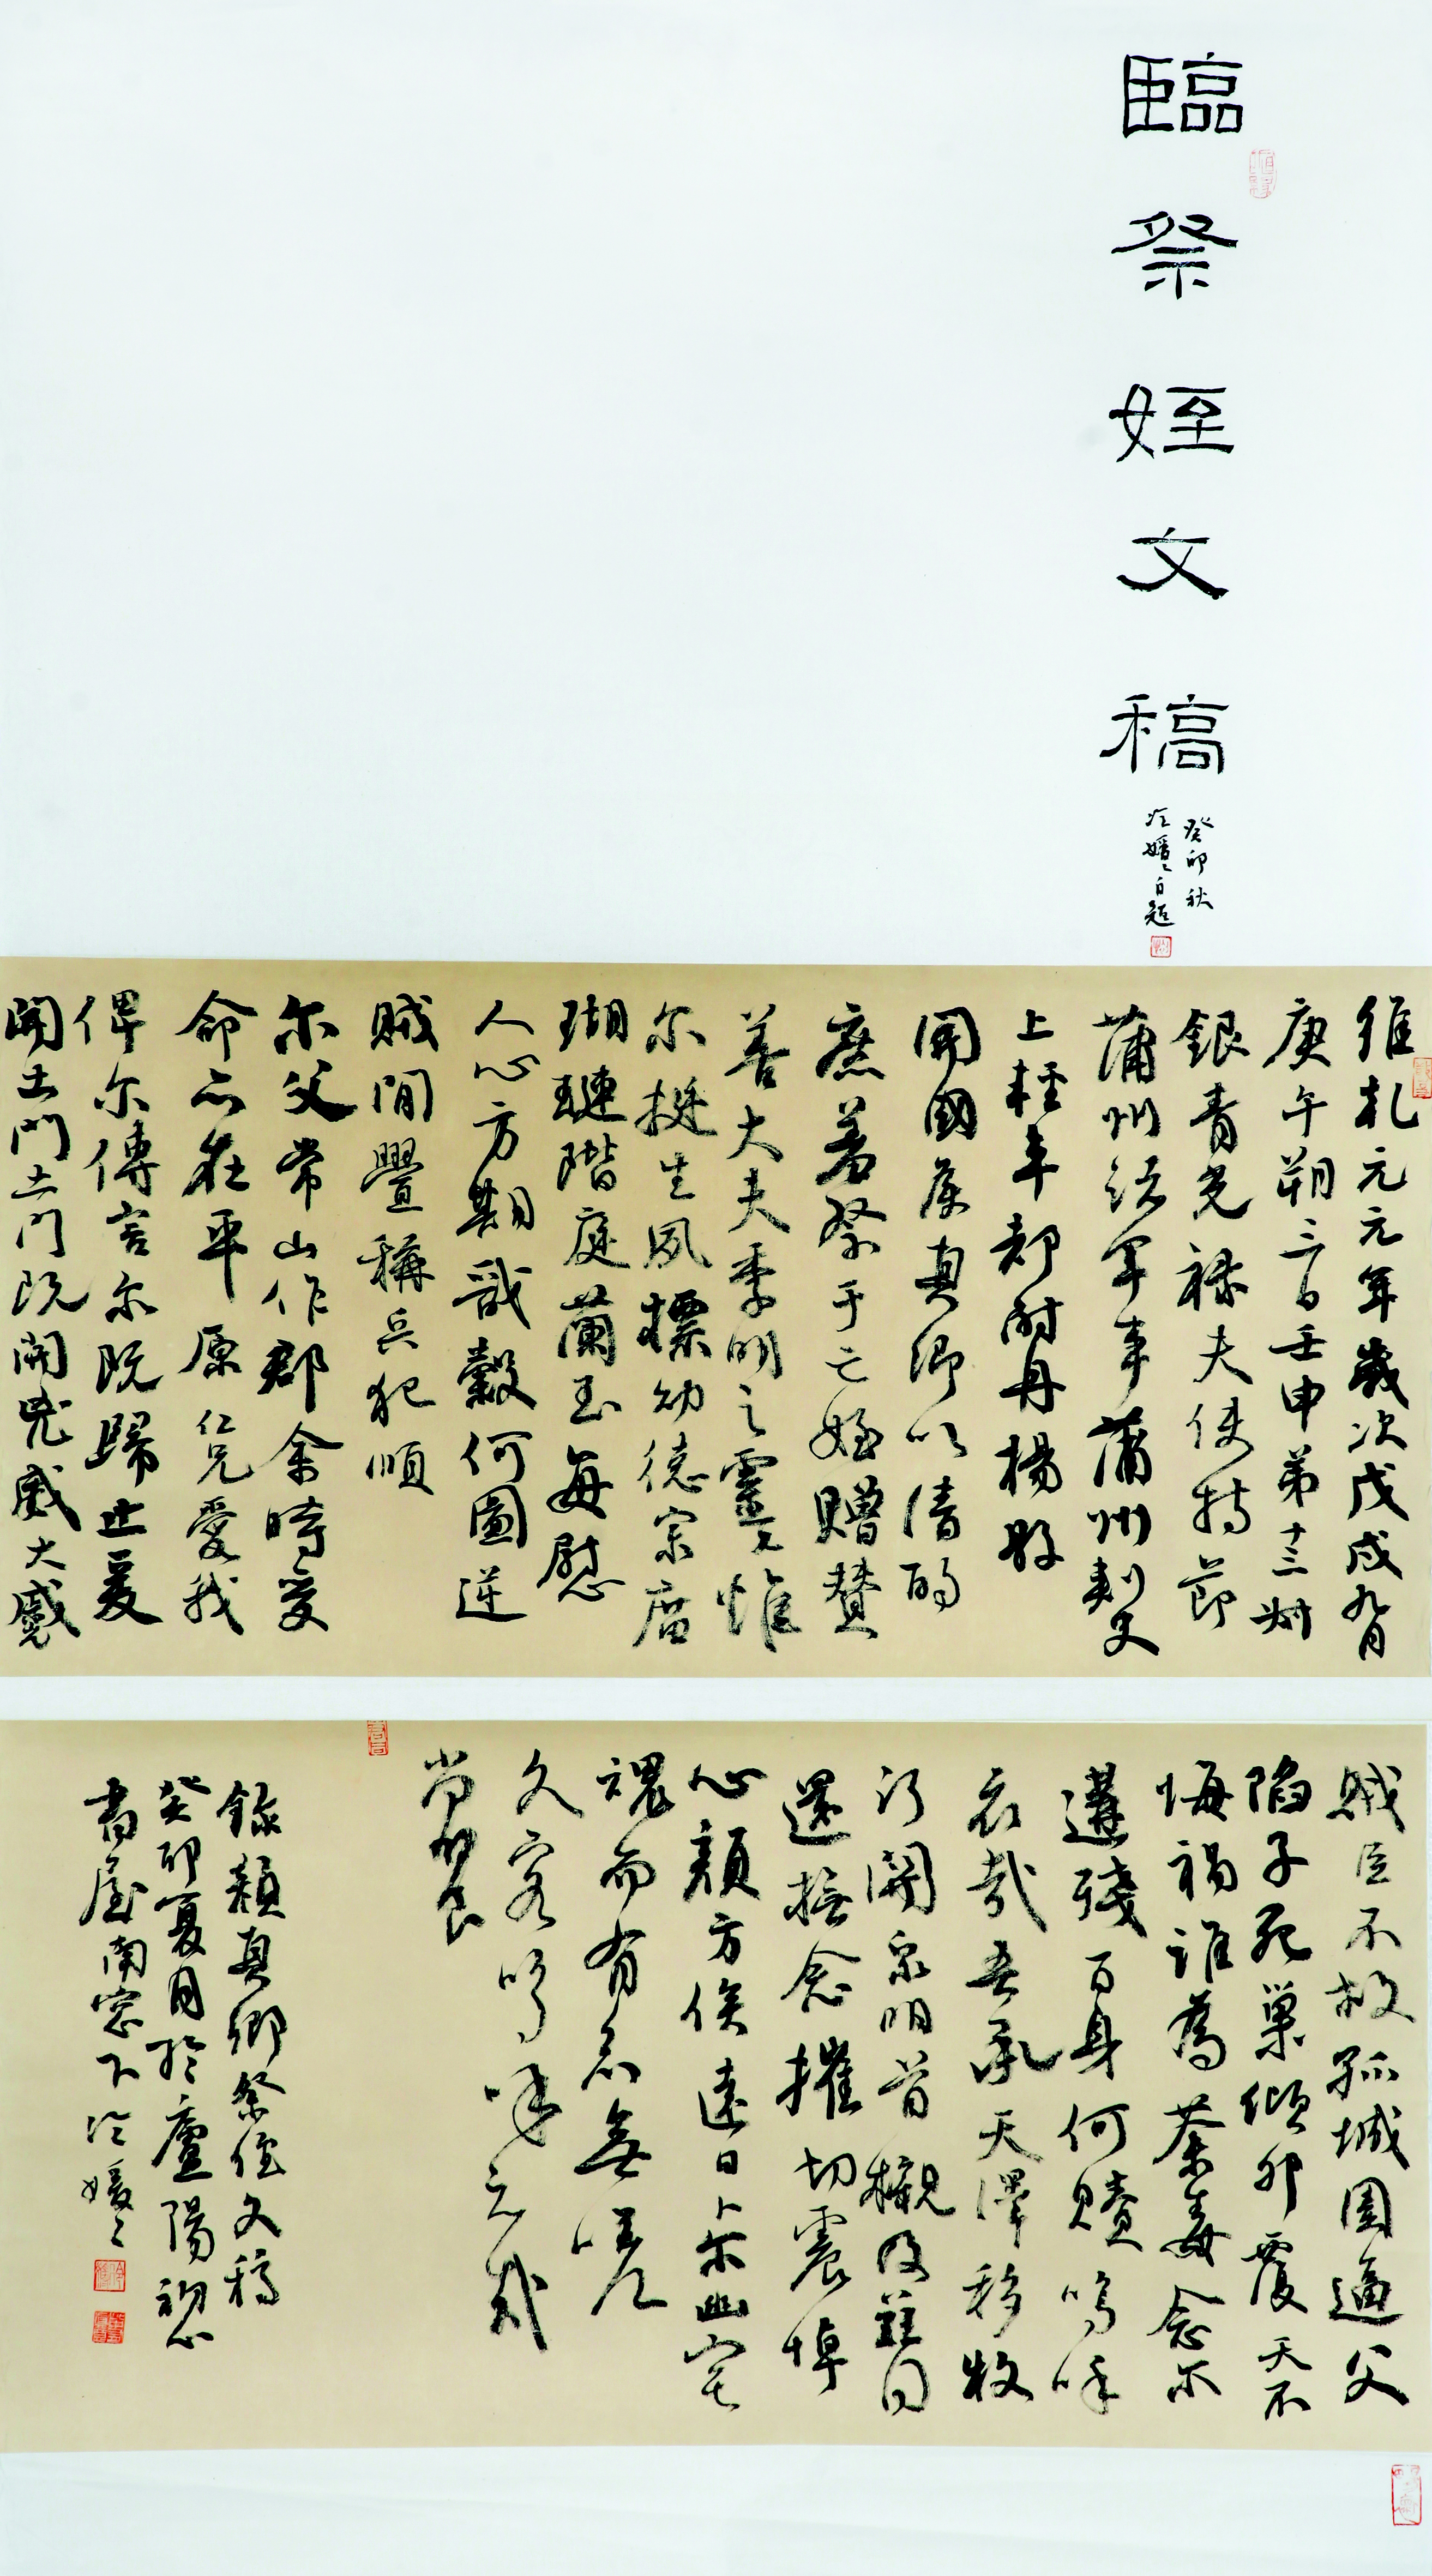 臨祭姪文稿
癸卯秋
冷媛之自題
維乾元元年歲次戊戌九月
庚午朔三日壬申第十三叔
銀青光祿夫使持節
蒲州諸軍事蒲州刺史
上輕車都尉丹楊縣
開國侯真卿以清酌
庶羞祭于亡姪贈贊
善大夫季明之靈惟
尔挺生夙標幼德宗廟
瑚璉階庭蘭玉每慰
人心方期戩穀何圖逆
賊閒釁稱兵犯順
尔父常山作郡余時受
命亦在平原仁兄愛我
俾尔傳言尔既歸止爰
開土門土門既開兇威大蹙
賊臣不救孤城圍逼父
陷子死巢傾卵覆天不
悔禍誰為荼毒念尔
遘殘百身何贖嗚呼
哀哉吾承天澤移牧
河關泉明首櫬及茲同
還撫念摧切震悼
心顏方俟遠日卜尔幽宅
魂而有知無嗟
久客嗚呼哀哉
尚饗
錄顏真卿祭侄文稿
癸卯夏月於廬陽初心
書屋南窗下冷媛之